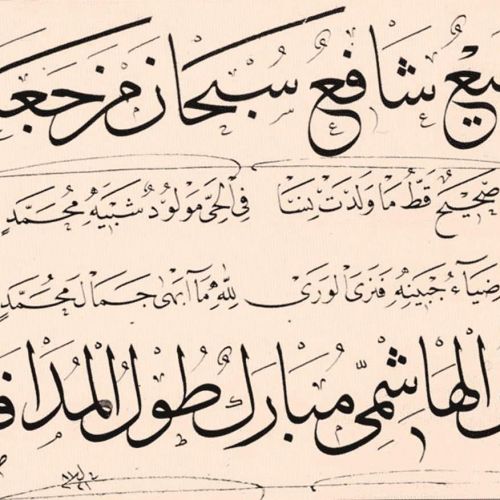 شافع سبحان من جعـ
صحيح قط ما ولدت نسا في الحي مولود شبيه محمد
ضياء جبينه فنرى الورى لله ما أبهى جمال محمد
الهاشمي مبارك طول المدا